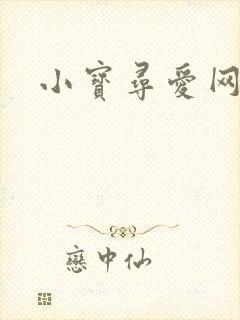 小寶尋愛网
戀中仙